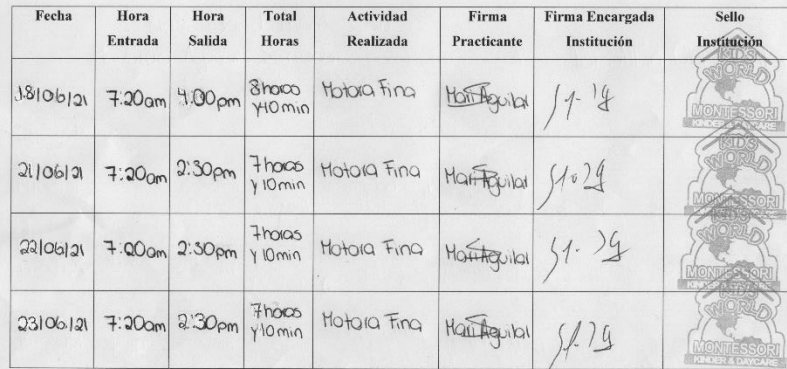 Fecha
Hora
Entrada
Hora
Salida
Total
Horas
Actividad
Realizada
Firma
Practicante
Firma Encargada
Institución
Sello
Institución
18/06/21
7:20am
4:00pm
8horas
y 40 min
Motora Fina
Mari Aguilar
KIDS
WORLD
MONTESSORI
KINDER & DAYCARE
21/06/21
7:20am
2:30pm
7 horas
y 10 min
Motora Fina
Mari Aguilar
KIDS
WORLD
MONTESSORI
22/06/21
7:20am
2:30pm
7horas
y 10min
Motora Fina
Mari Aguilar
WORLD
MONTESSORI
KINDER & DAYCARE
23/06/21
7:20am
2:30pm
7horas
y 10min
Motora Fina
Mari Aguilar
WORLD
MONTESSORI
KINDER & DAYCARE